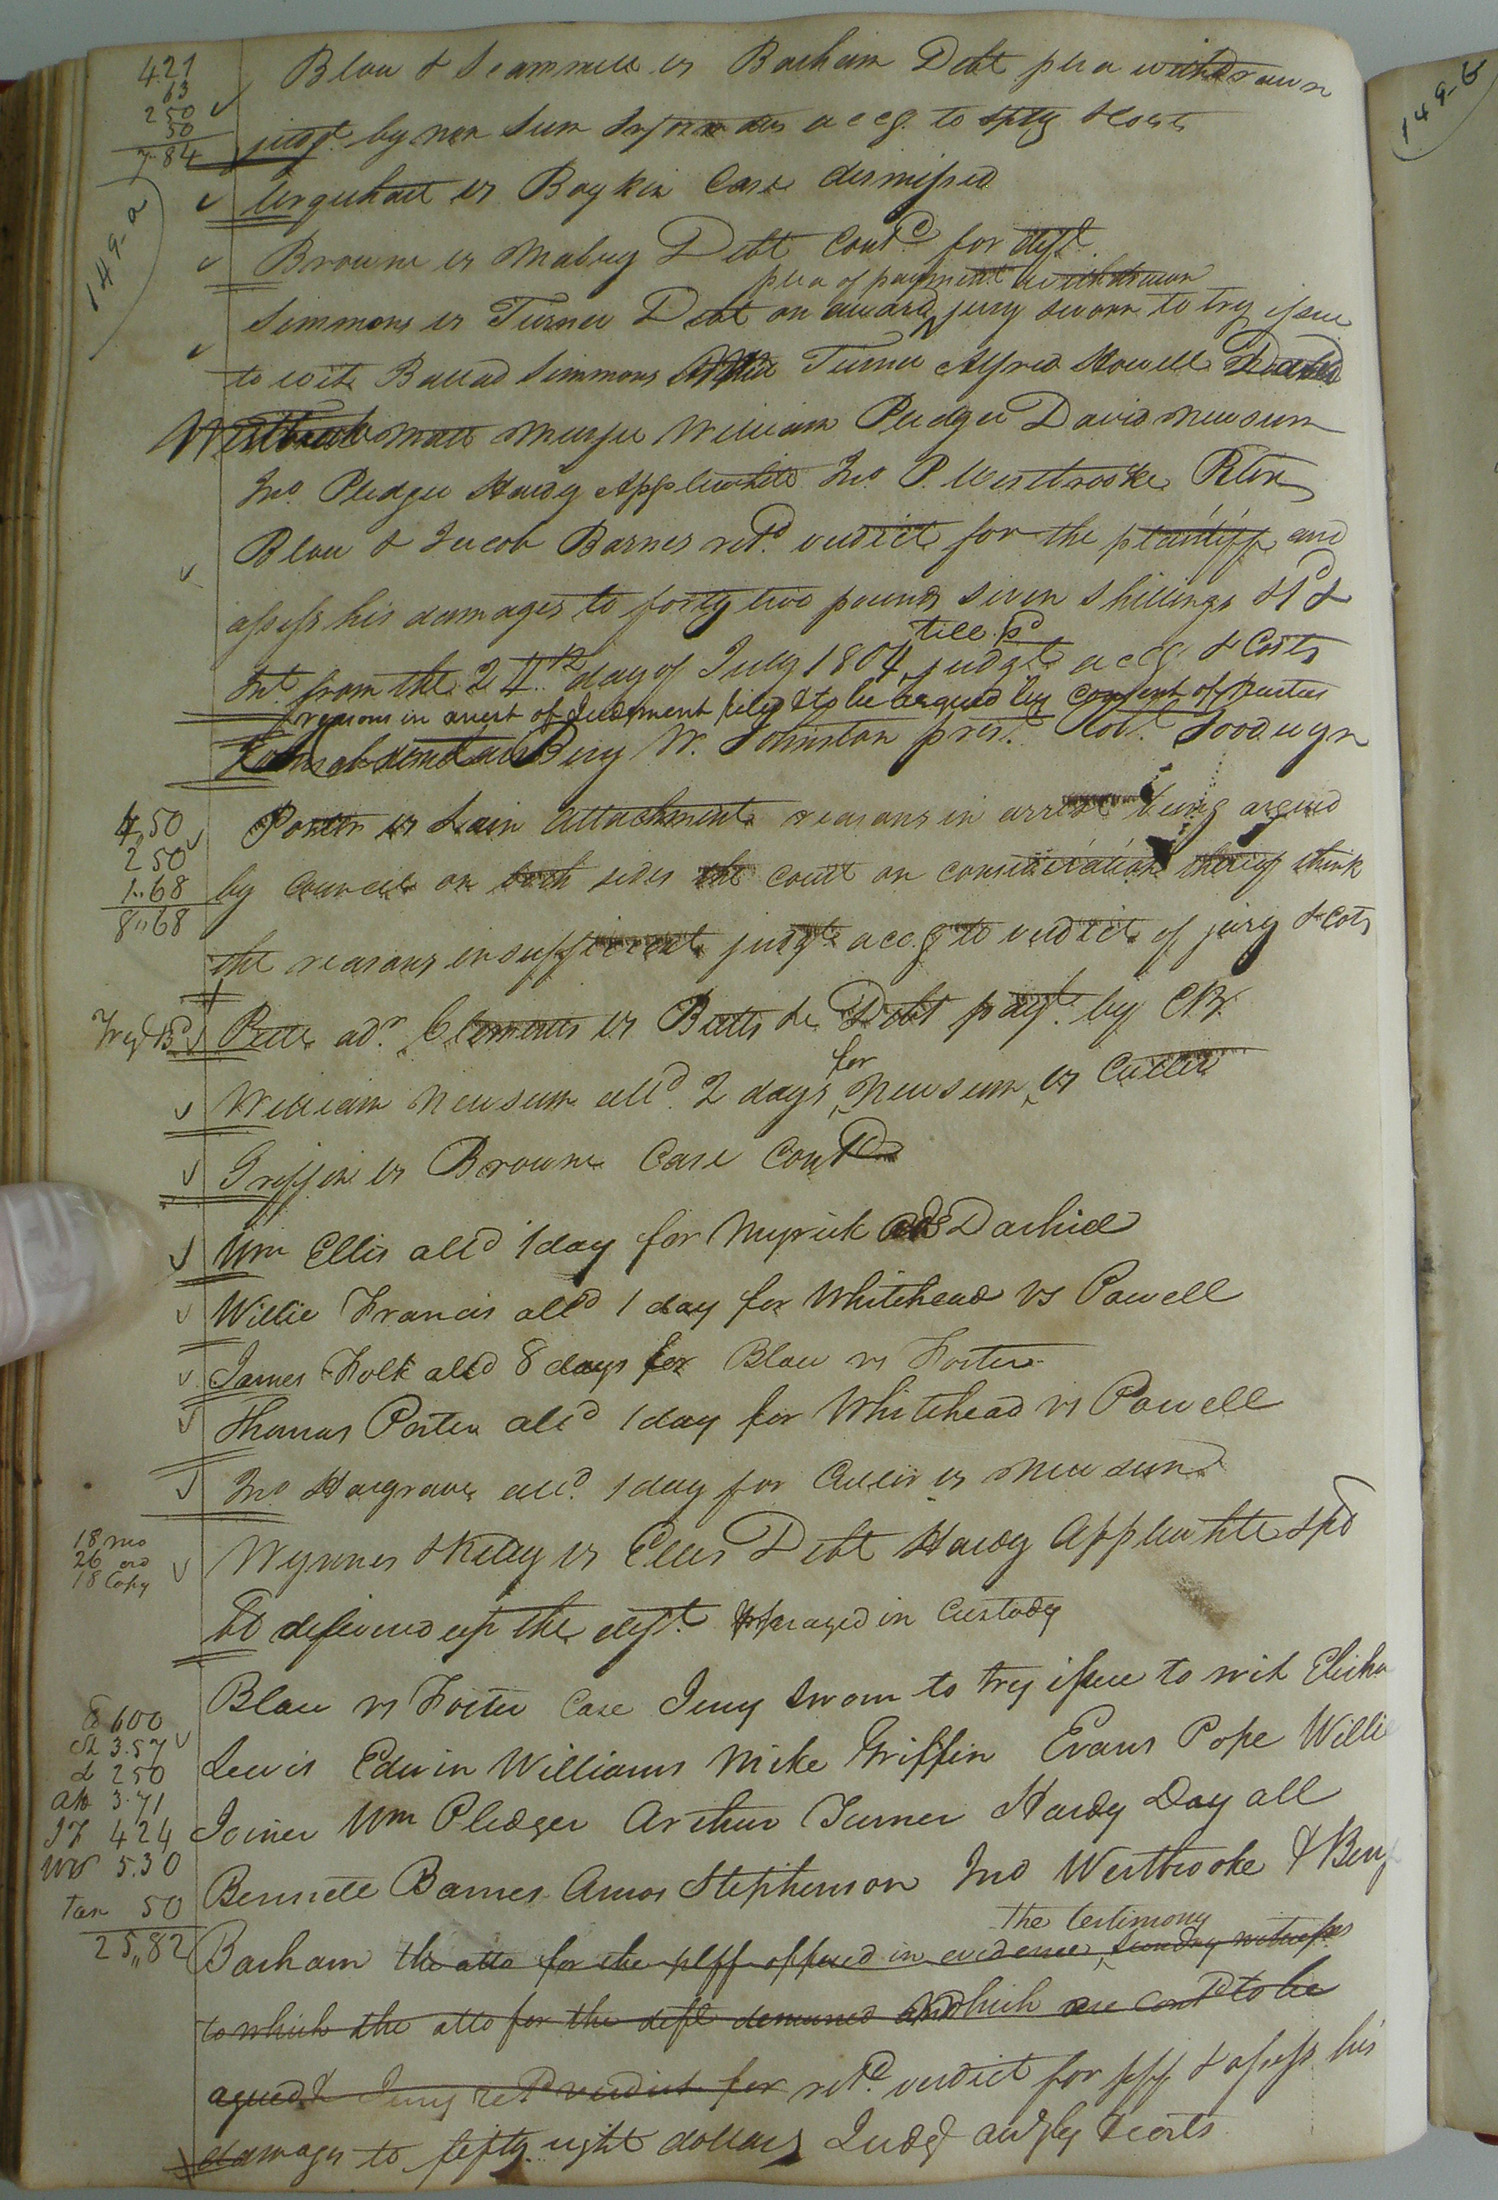 421
63
250
50
7.84
Blow & Scammell vs Barham Debt plea withdrawn
judgt. by non Sum Informatus accg. to Spty & Costs
149-a
149-b
Urquhart vs Boykin Case dismissed
Browne vs Mabry Debt Contd for deft.
plea of payment withdrawn
Simmons vs Turner Debt on award jury sworn to try issue
to wit Ballad Simmons Turner Alfred Howell
Westbrook Matt William Pledger David Newsum
Jno. Pledger Hardy Applewhite Jno. P. Westbrooke
Blow & Jacob Barnes retd. verdict for the plaintiff and
assess his damages to forty two pounds seven shillings &
till pd
Int. from the 24th day of July 1804 judgt. accg. & Costs
reasons in arrest of Judgment filed & to be argued by consent of parties
Benj W. Johnston prest. Robt. Goodwyn
4,50
250
1,,68
8,,68
Porter vs Lain Attachment reasons in arrest being argued
by Council on both sides the Court on consideration thereof think
the reasons insufficient judgt. accg to verdict of jury & Cots
Pete adr. Clements vs Butts &c Debt payt. by
for
William Newsum alld. 2 days Newsum vs Cutler
Griffin vs Browne Case Contd
Wm Ellis alld 1 day for Myrick Dashiel
Willie Francis alld 1 day for Whitehead vs Powell
James Folk alld 8 days for Blow vs Foster
Thomas Porter alld 1 day for Whitehead vs Powell
Jno. Hargrave alld. 1 day for vs Newsum
18 mo
26 ord
18 Copy
Wynnes & Kelly vs Ellis Debt Hardy Applewhite
delivered up the deft. & prayed in Custody
600
3.57
250
3.71
424
5.30
Tax 50
25,,82
Blow vs Foster Case Jury sworn to try issue to wit
Lewis Edwin Williams Mike Griffin Evans Pope Willie
Joiner Wm Pledger Arthur Turner Hardy Day all
Bennett Barnes Amos Stephenson Jno Westbrooke & Benj
the testimony
Barham the atto for the plff offered in evidence Sunday witnesses
to which the atto for the deft demured which are contd to be
agued & Jury retd verdict for retd. verdict for plff & assess his
damages to fifty eight dollars Judgt & Costs